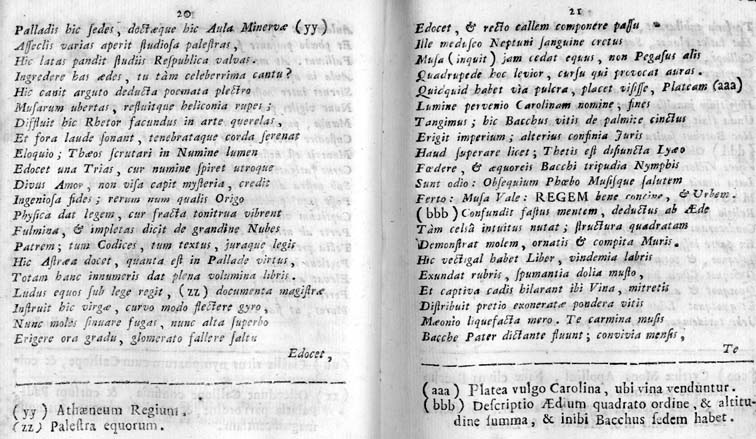 20
Palladis hic sedes, doctæque hic Aula Minervæ (yy)
Asseclis varias aperit studiosa palestras,
Hic latas pandit studiis Respublica valvas.
Ingredere has ædes, tu tàm celeberrima cantu?
Hic canit arguto deducta poemata plectro
Musarum ubertas, resluitque heliconia rupes;
Diffluit hic Rhetor facundus in arte querelas,
Et fora laude sonant, tenebrataque corda serenat
Eloquio; Thæos scrutari in Numine lumen
Edocet una Trias, cur numine spiret utroque
Divus Amor, non visa capit mysteria, credit
Ingeniosa fides; rerum num qualis Origo
Physica dat legem, cur fracta tonitrua vibrent
Fulmina, & impletas dicit de grandine Nubes
Patrem; tum Codices, tum textus, juraque legis
Hic Astræa docet, quanta est in Pallade virtus,
Totam hanc innumeris dat plena volumina libris.
Ludus equos sub lege regit, (zz) documenta magistræ
Instruit hic virgæ, curvo modo flectere gyro,
Nunc molès sinuare fugas, nunc alta superbo
Erigere ora gradu, glomerato fallere saltu
Edocet,
(yy) Athæneum Regium.
(zz) Palestra equorum.
21
Edocet, & recto callem componere passu
Ille meduseo Neptuni sanguine cretus
Musa (inquit) jam cedat equus, non Pegasus alis
Quadrupede hoc levior, cursu qui provocat auras.
Quidquid habet via pulcra, placet visisse, Plateam (aaa)
Lumine pervenio Carolinam nomine; fines
Tangimus; hic Bacchus vitis de palmite cinctus
Erigit imperium; alterius confinia Juris
Haud superare licet; Thetis est disjuncta Lyæo
Fœdere, & æquoreis Bacchi tripudia Nymphis
Sunt odio: Obsequium Phœbo Musisque salutem
Ferto: Musa Vale: REGEM bene concine, & Urbem.
(bbb) Confundit fastus mentem, deductus ab Æde
Tàm celsâ intuitus nutat; structura quadratam
Demonstrat molem, ornatis & compita Muris.
Hic vectigal habet Liber, vindemia labris
Exundat rubris, spumantia dolia musto,
Et captiva cadis hilarant ibi Vina, mitretis
Distribuit pretio exoneratæ pondera vitis
Mæonio liquefacta mero. Te carmina musis
Bacche Pater dictante fluunt; convivia mensis,
Te
(aaa) Platea vulgo Carolina, ubi vina venduntur.
(bbb) Descriptio Ædium quadrato ordine, & altitu-
dine summa, & inibi Bacchus sedem habet.